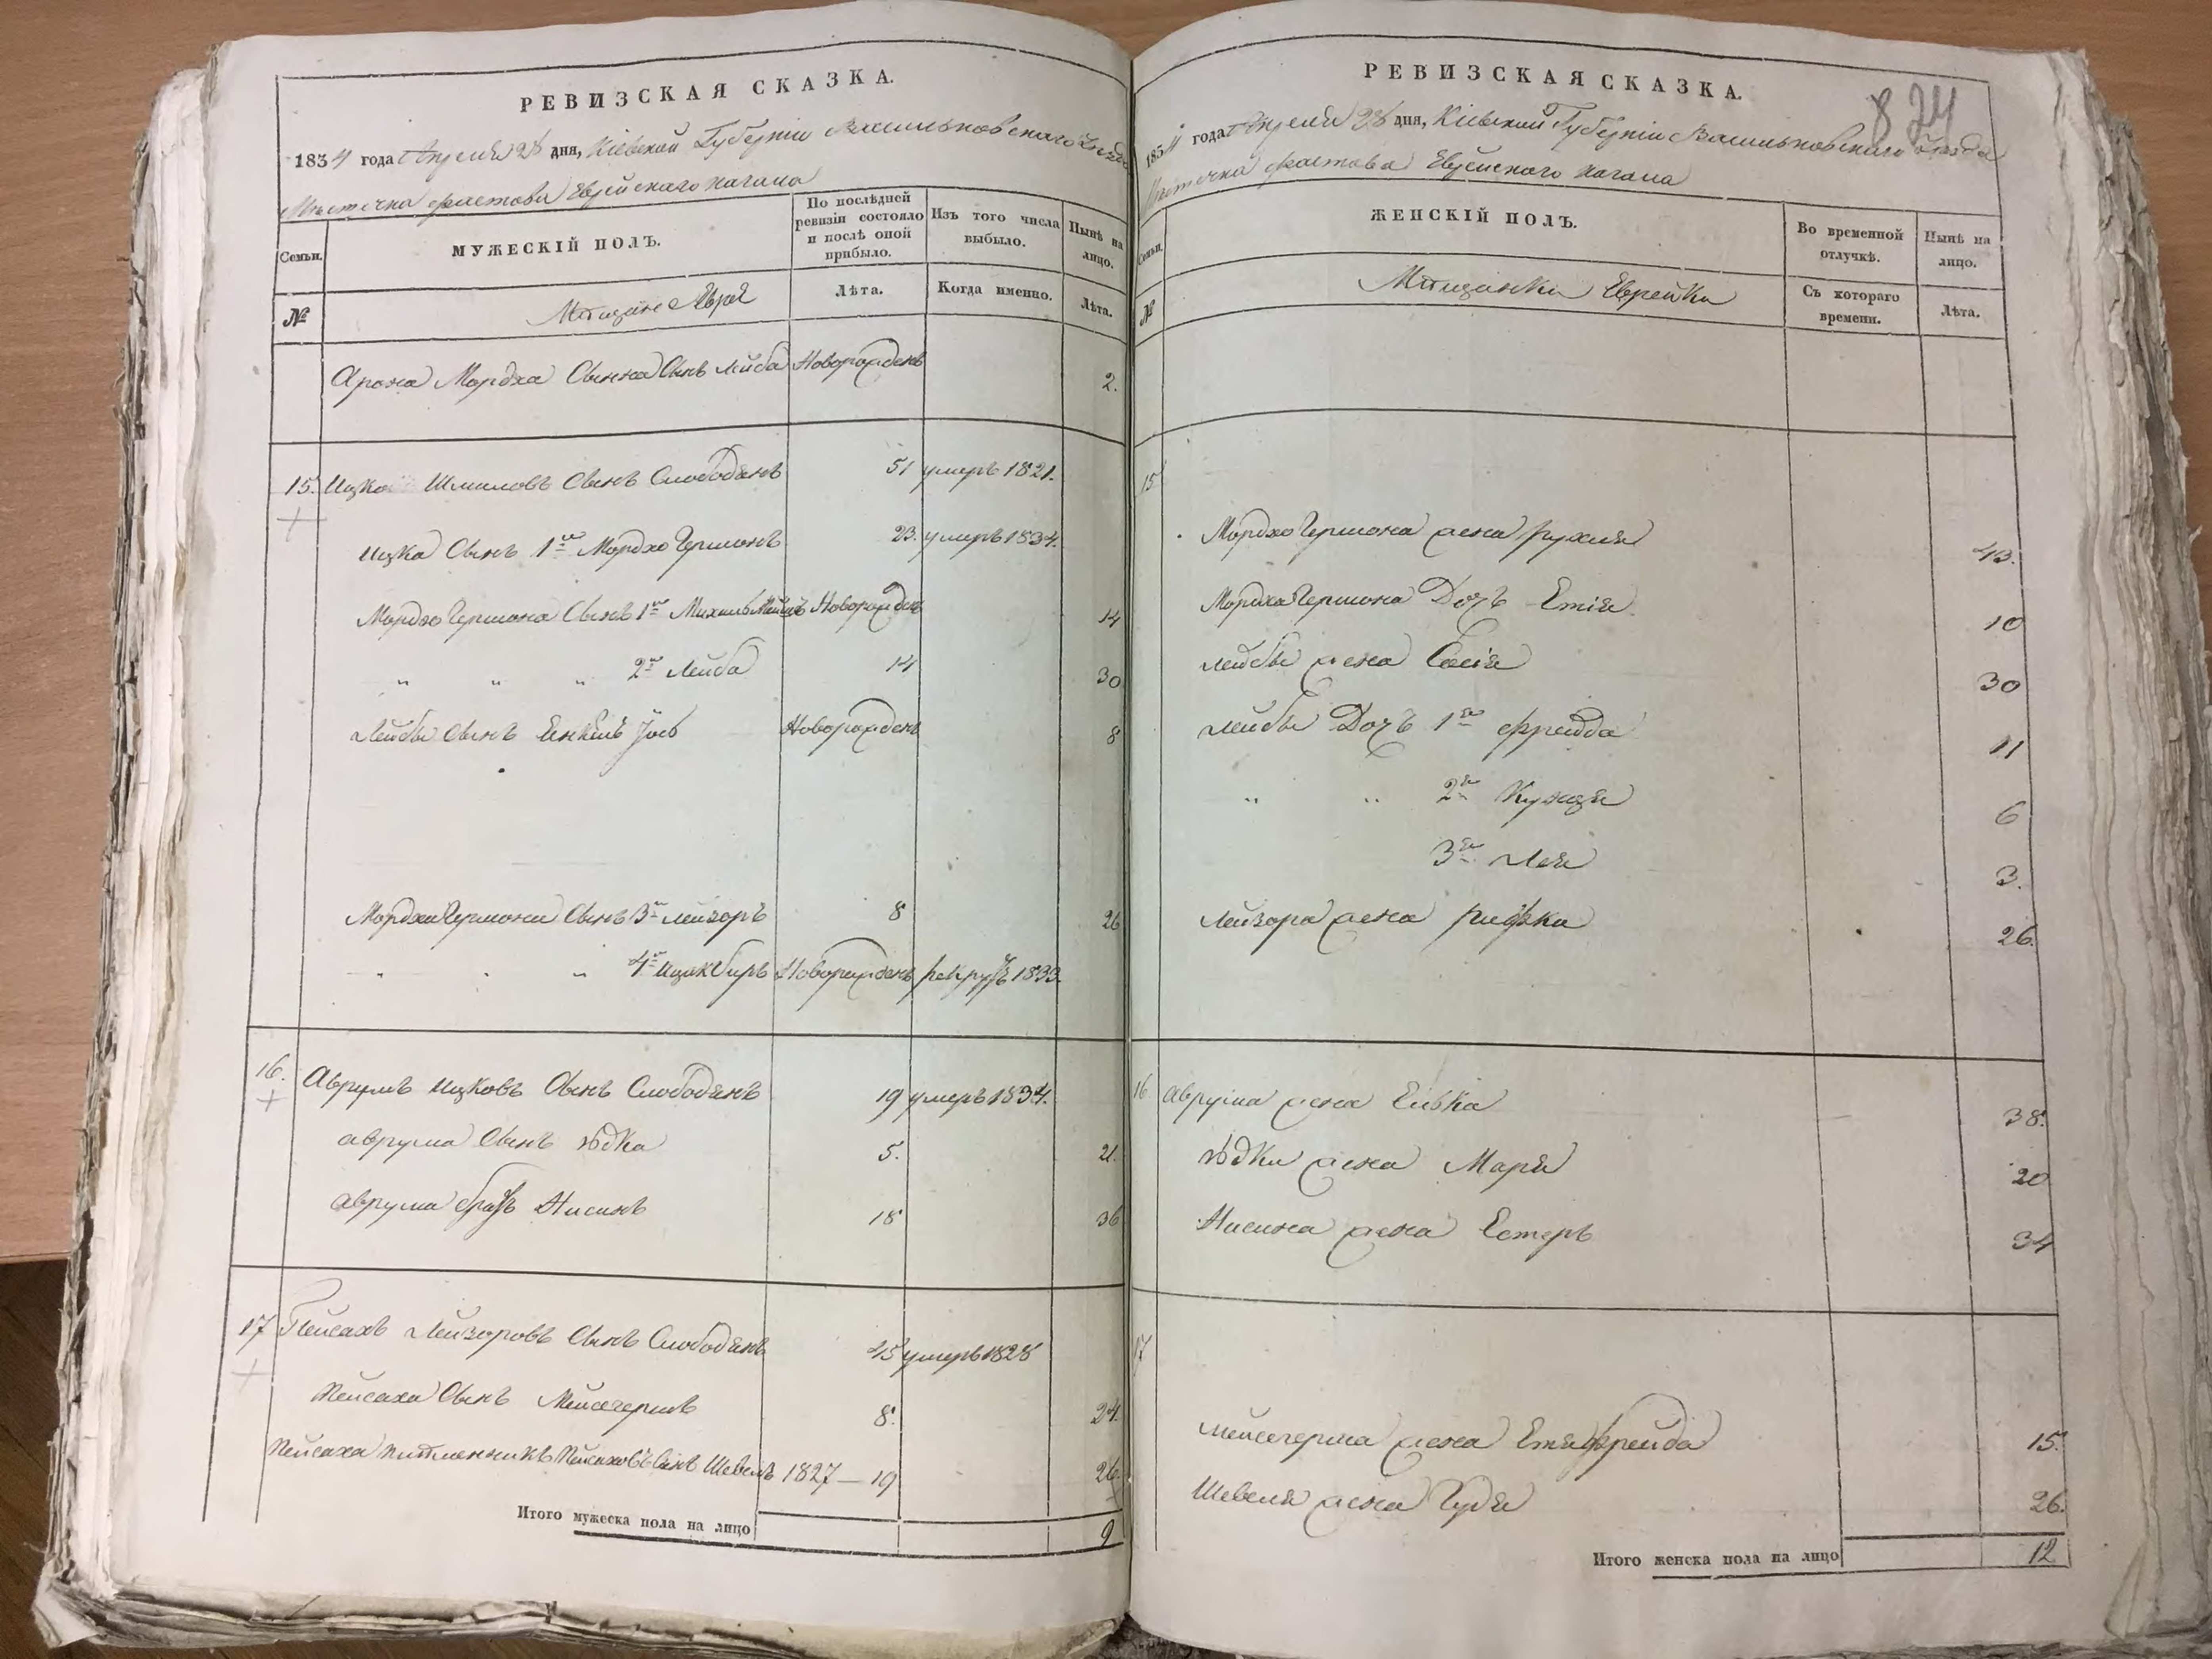 РЕВИЗСКАЯ СКАЗКА.
1834 года Апреля 28 дня, Кіевской Губерніи Васильковскаго уезда
Местечка Фастова Еврейскаго кагала
Семьи.
МУЖЕСКІЙ ПОЛЪ.
По послѣдней ревизіи состояло и послѣ оной прибыло.
Изъ того числа выбыло.
Нынѣ на лицо.
№
Мещане Евреи
Лѣта.
Когда именно.
Лѣта.
Арона Мордха Сынна Сынъ Лейба Новорожденъ 2.
15. Ицко Шмиловъ Сынъ Слободянъ 51 умеръ 1821.
Ицка Сынъ 1й Мордхо Гершонъ 23. умеръ 1834.
Мордхо Гершона Сынъ 1й Михиль Новорожденъ 14
" " " 2й Лейба 14 30
Лейбы Сынъ Енкель Іось Новорожденъ 8
Мордхи Гершона Сынъ 3й Лейзоръ 8 26
" " " 4й Ицикберъ Новорожденъ рекрутъ 1833.
16. Аврумъ Ицковъ Сынъ Слободянъ 19 умеръ 1834.
Аврума Сынъ Юдка 5. 21.
Аврума братъ Нисинъ 18 36
17 Пейсахъ Лейзоровъ Сынъ Слободянъ 45 умеръ 1828
Пейсаха Сынъ Мейсегершъ 8. 24.
Пейсаха племенникъ Пейсаховъ Сынъ Шевель 1827 — 19 26.
Итого мужеска пола на лицо 9
РЕВИЗСКАЯ СКАЗКА.
824
1834 года Апреля 28 дня, Кіевской Губерніи Васильковскаго уезда
Местечка Фастова Еврейскаго кагала
Семьи.
ЖЕНСКІЙ ПОЛЪ.
Во временной отлучкѣ.
Нынѣ на лицо.
№
Мещанки Еврейки
Съ котораго времени.
Лѣта.
15
Мордхо Гершона жена Рухля 43.
Мордха Гершона Дочь Етія 10
Лейбы жена Сосія 30
Лейбы Дочь 1я Фрейда 11
" " 2я Кунця 6
3я Лея 3.
Лейзора жена Рифка 26.
16. Аврума жена Ривка 38.
Юдки жена Маря 20
Нисина жена Естеръ 34
17
Мейсегерша жена Етяфрейда 15.
Шевеля жена Гудя 26.
Итого женска пола на лицо 12